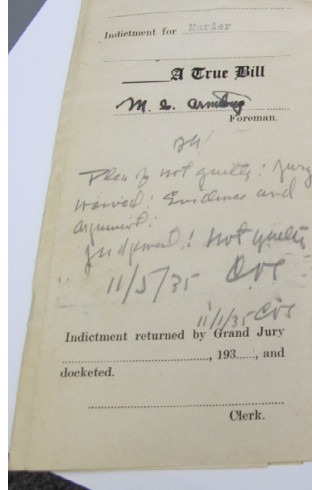 Indictment for Murder
A True Bill
M. E.
Foreman.
Plea of not guilty: Jury
waived: Evidence and
argument:
Judgment: not guilty
11/5/35
11/1/35
Indictment returned by Grand Jury
, 193....., and
docketed.
Clerk.